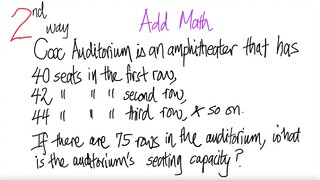 2nd way
Add Math
Coox Auditorium is an amphitheater that has
40 seats in the first row,
42 " " " second row,
44 " " " third row, & so on.
If there are 75 rows in the auditorium, what
is the auditorium's seating capacity?